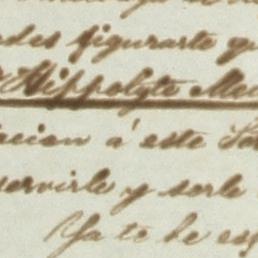 edes figurarte qu
Hippolyte Me
cion á este
servirle y serle
Ya te he es